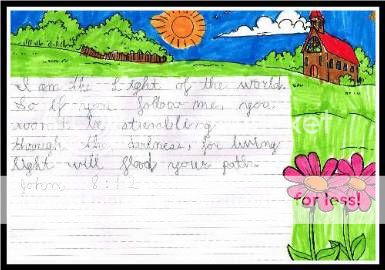 I am the Light of the world.
So if you follow me, you
won't be stumbling
through the darkness, for living
light will flood your path.
John 8:12
for less!